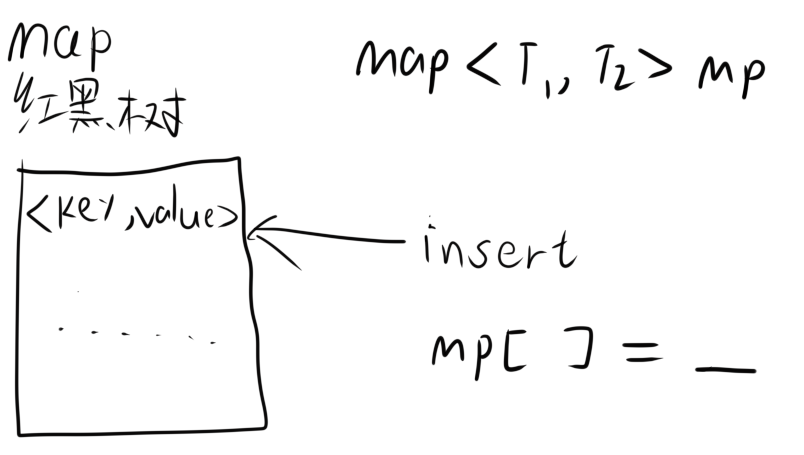 map
红黑树
map<T1, T2> mp
<key,value>
......
insert
mp[ ] = __